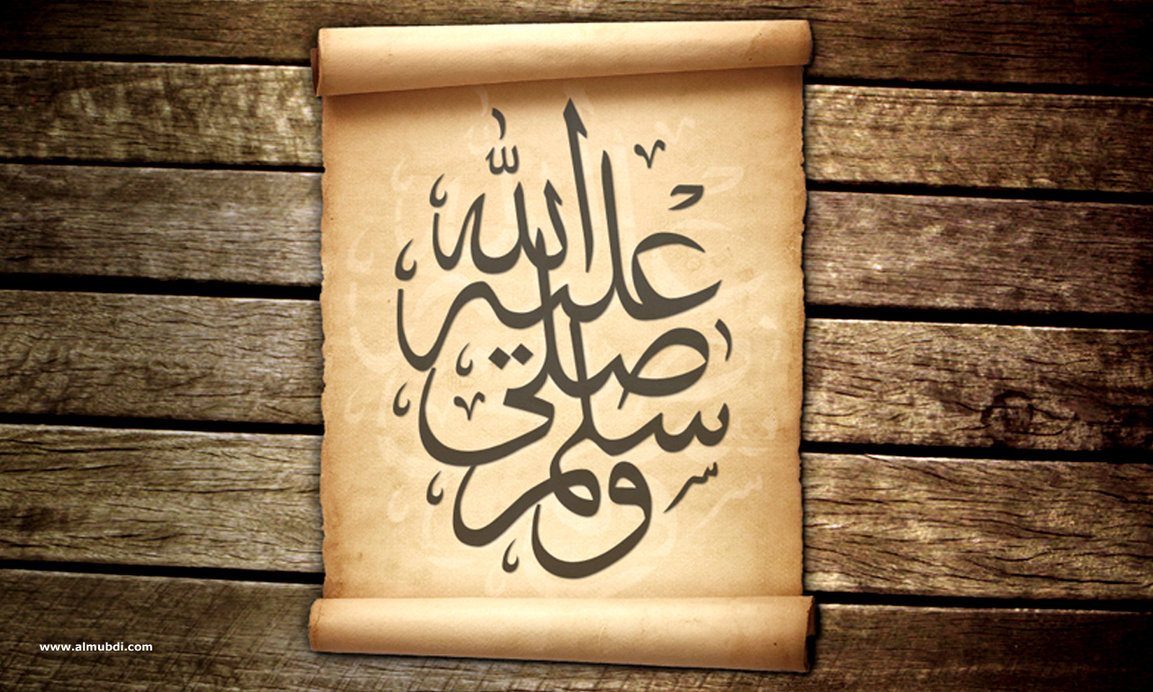 صلى الله عليه وسلم
www.almubdi.com